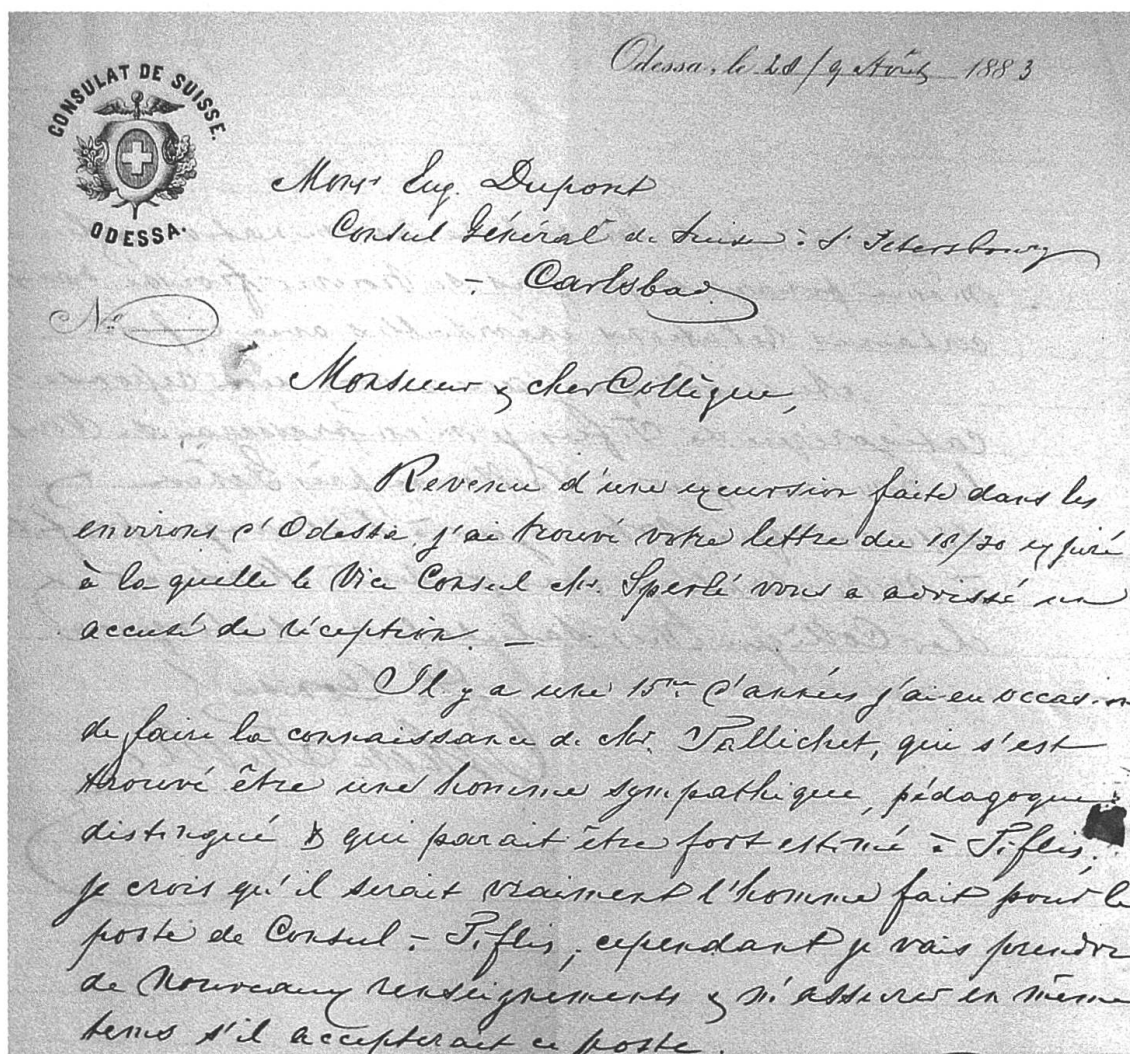 Odessa, le 28/9 Août 1883
CONSULAT DE SUISSE.
ODESSA.
Monsr Eug. Dupont
Consul Général de Suisse à St Petersbourg
Carlsbad.
No
Monsieur & cher Collègue,
Revenu d'une excursion faite dans les
environs d'Odessa j'ai trouvé votre lettre du 18/30
à la quelle le Vice Consul Mr. Sperlé vous a adressé un
accusé de réception. —
Il y a une 15ne d'années j'ai eu occasion
de faire la connaissance de Mr. Tallichet, qui s'est
trouvé être une homme sympathique, pédagogue
distingué & qui parait être fort estimé à Tiflis,
je crois qu'il serait vraiment l'homme fait pour le
poste de Consul à Tiflis, cependant je vais prendre
de nouveaux renseignements & m'assurer en même
tems s'il accepterait ce poste.